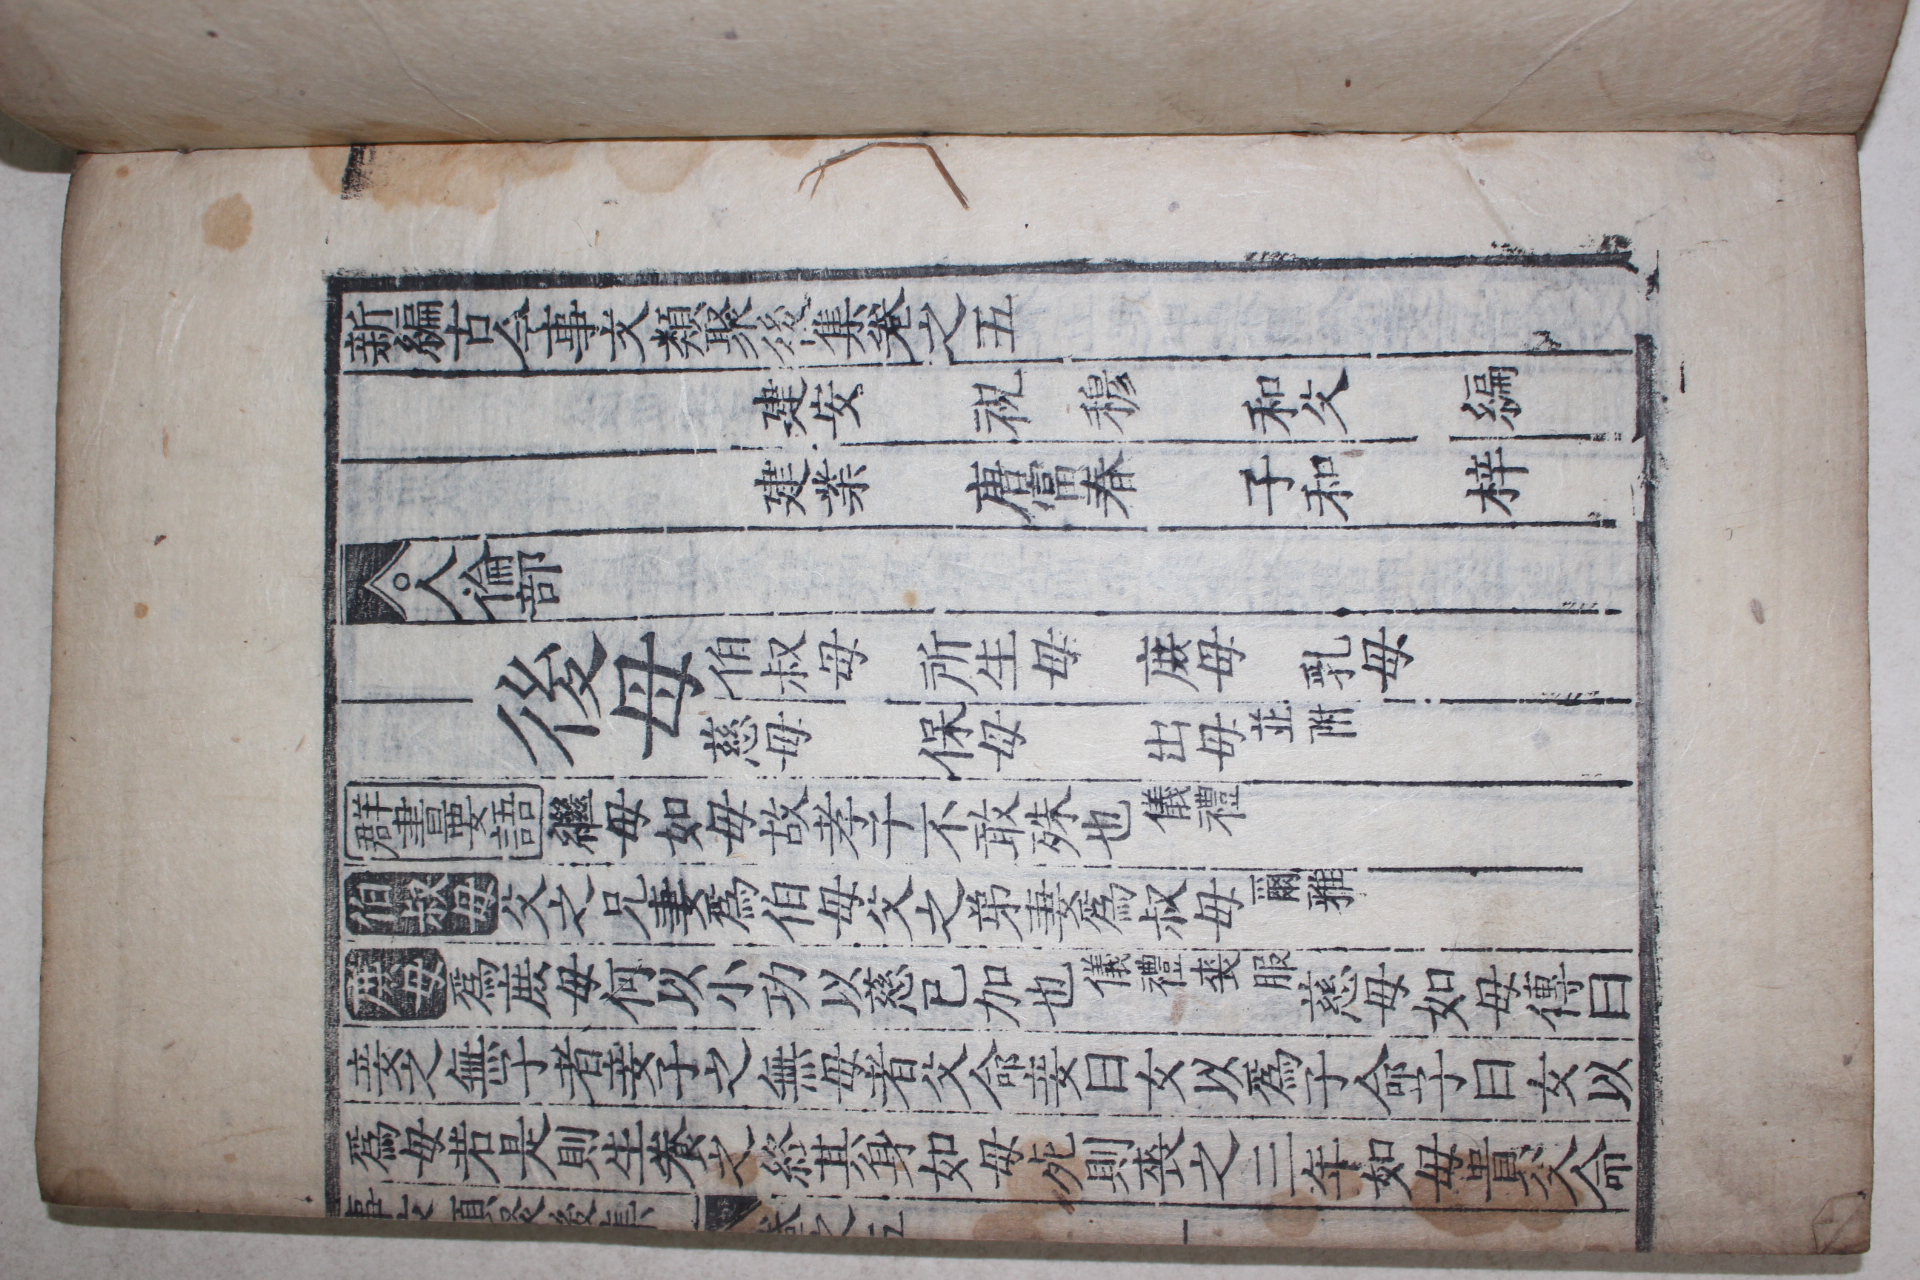 新編古今事文類聚後集卷之五
建安 祝 穆 和父 編
建業 唐富春 子和 梓
人倫部
後母 伯叔母 所生母 庶母 乳母
慈母 保母 出母並附
群書要語 繼母如母故孝子不敢殊也儀禮
伯叔母 父之兄妻爲伯母父之弟妻爲叔母爾雅
庶母 爲庶母何以小功以慈己加也儀禮喪服慈母如母傳曰
妾之無子者妾子之無母者父命妾曰女以爲子命子曰女以
爲母若是則生養之終其身如母死則喪之三年如母貴父命
事文類聚後集 卷之五 一